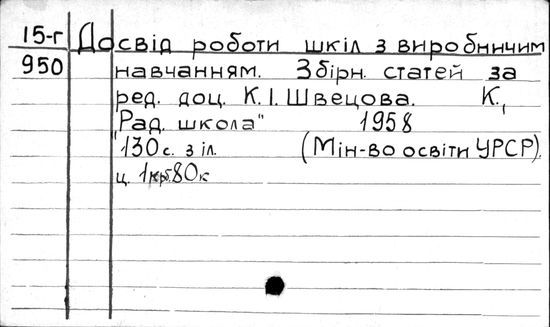 15-г Досвід роботи шкіл з виробничим
950 навчанням. Збірн. статей за
ред. доц. К.І. Швецова. К.,
"Рад. школа" 1958
130с. з іл. (Мін-во освіти УРСР).
ц. 1крб80к